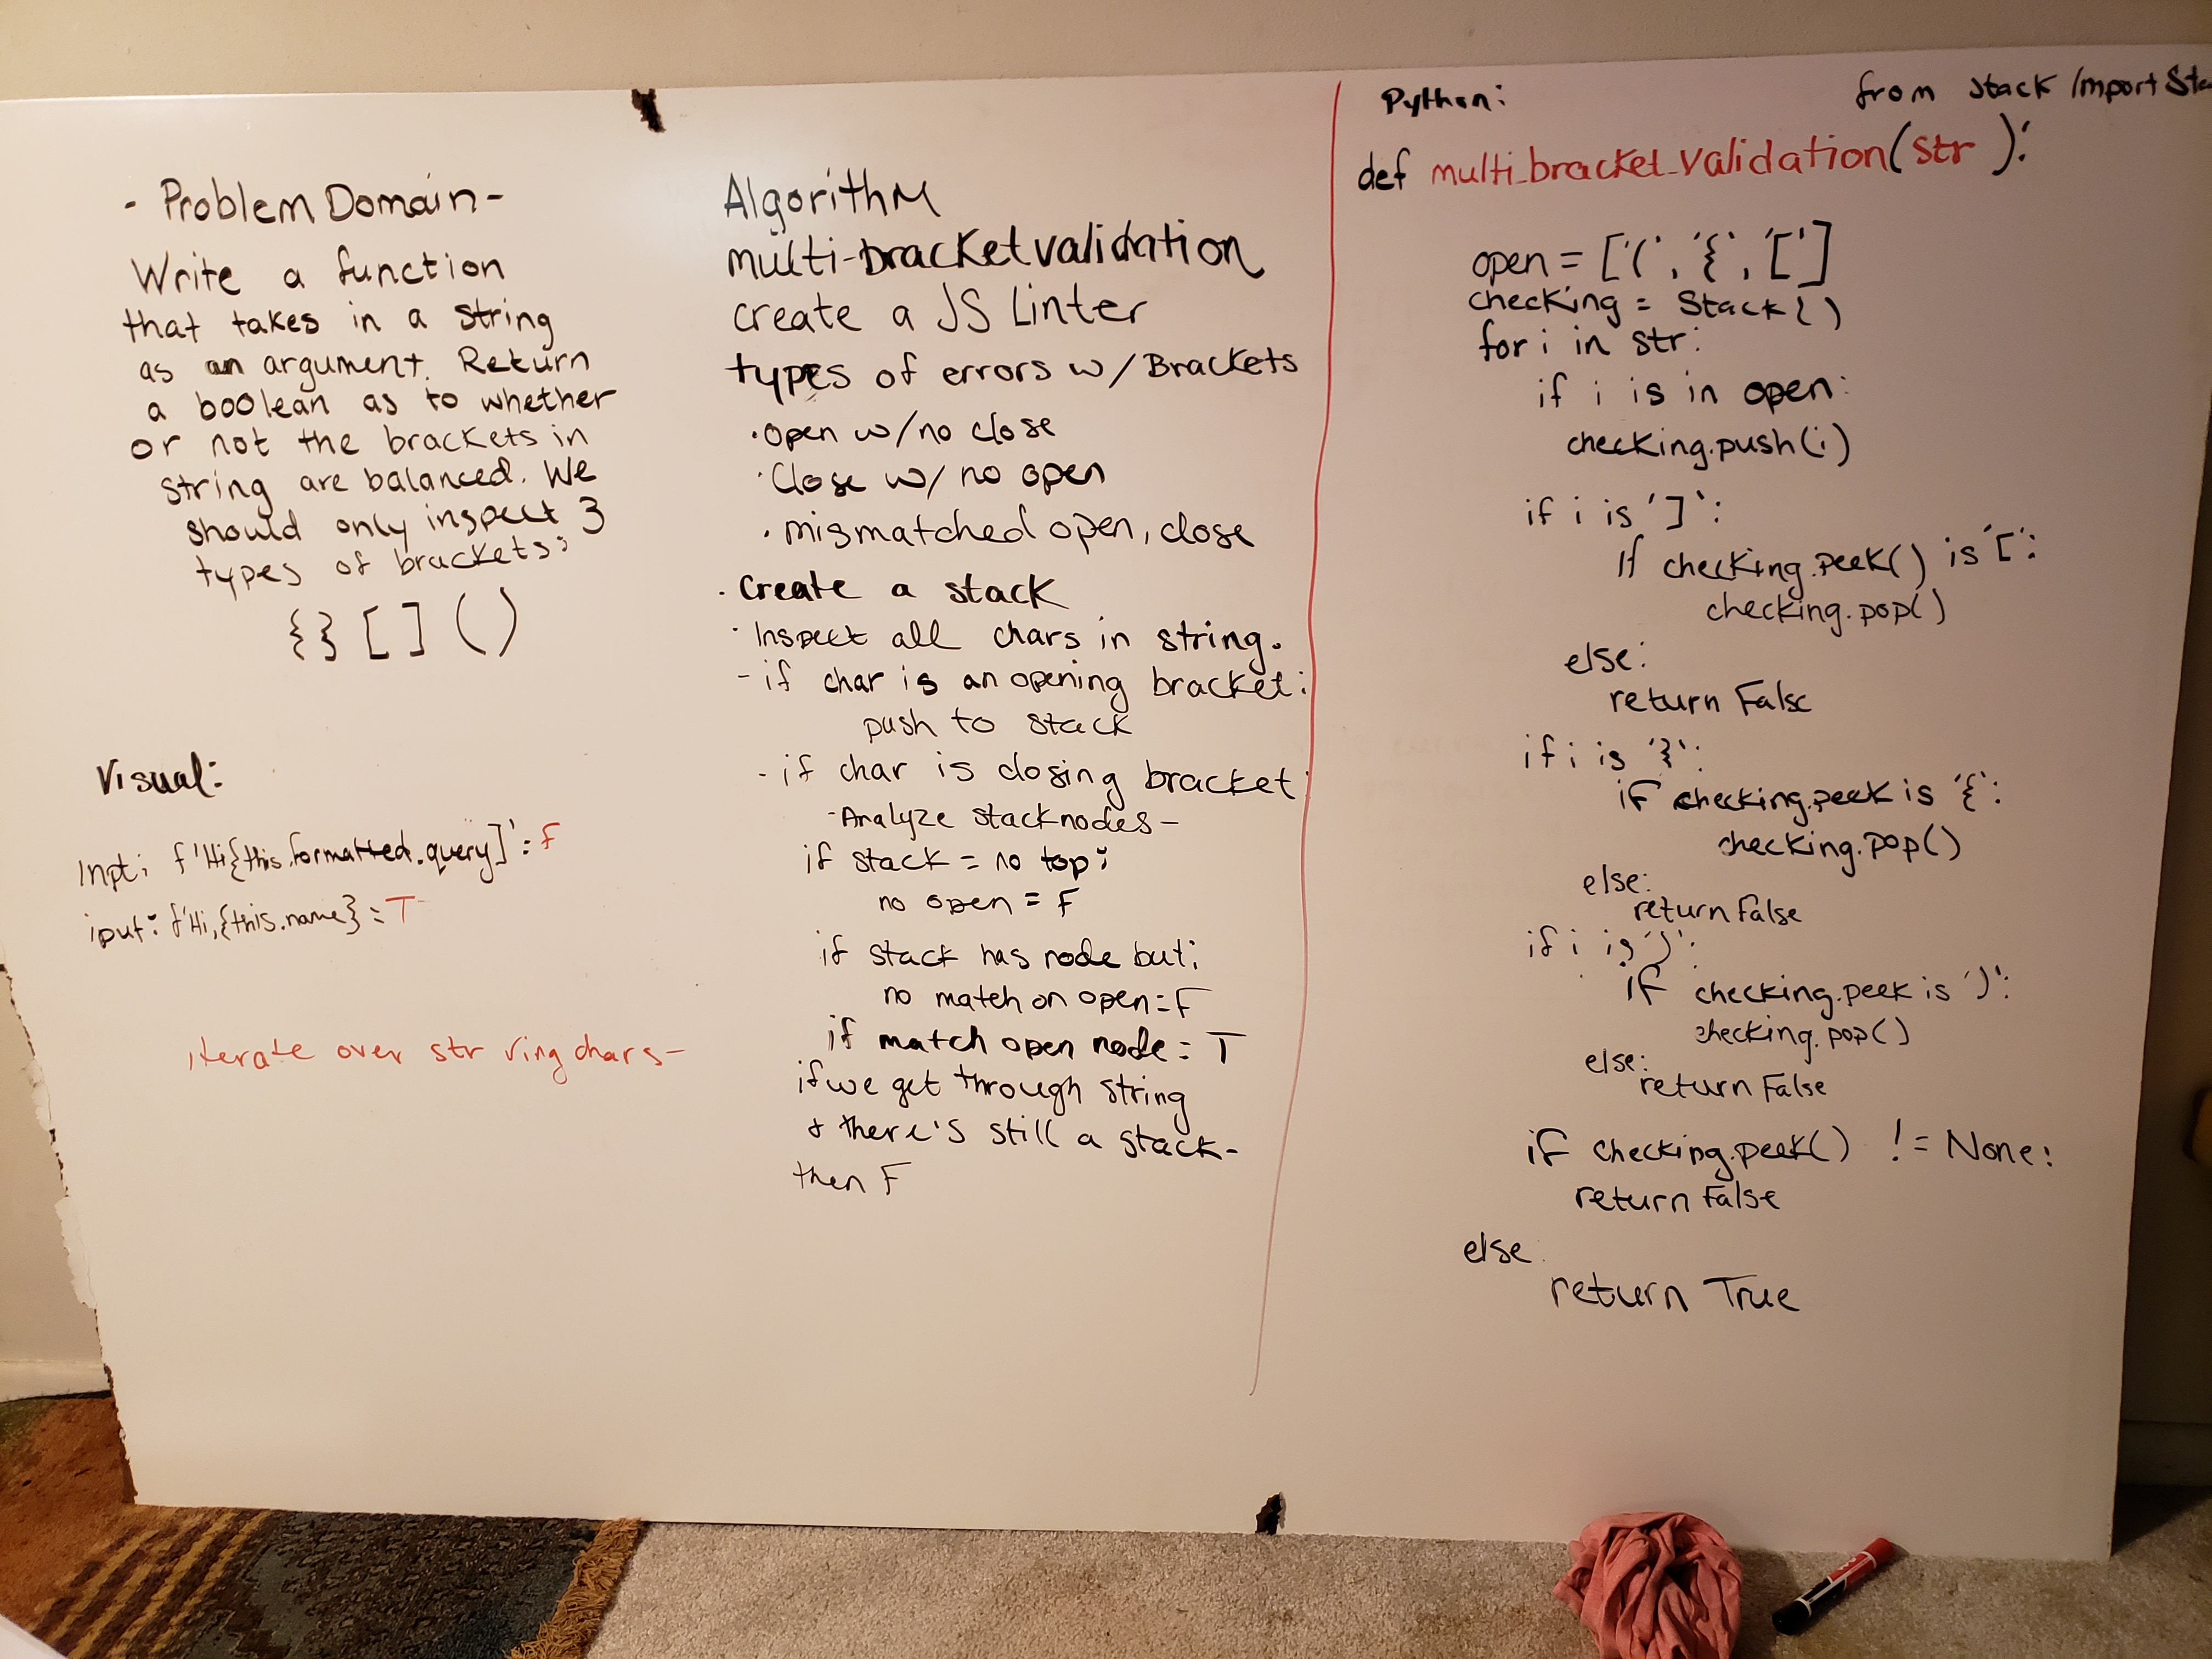 - Problem Domain -
Write a function
that takes in a string
as an argument. Return
a boolean as to whether
or not the brackets in
string are balanced. We
should only inspect 3
types of brackets:
{} [] ()
Visual:
Inpt: f'Hi{this.formatted.query]': F
iput: f'Hi,{this.name} = T
iterate over str ving chars-
Algorithm
multi-bracketvalidation
create a JS Linter
types of errors w/Brackets
• open w/no close
• Close w/ no open
• mismatched open, close
• Create a stack
• Inspect all chars in string.
- if char is an opening bracket:
push to stack
- if char is closing bracket:
- Analyze stacknodes -
if stack = no top:
no open = F
if stack has node but:
no match on open = F
if match open node = T
if we get through string
& there's still a stack-
then F
Python:
from stack Import Sta
def multi_bracket_validation(str ):
open = ['(', '{', '[']
checking = Stack()
for i in str:
if i is in open:
checking.push(i)
if i is ']':
If checking.peek() is '[':
checking.pop()
else:
return False
if i is '}':
if checking.peek is '{':
checking.pop()
else:
return False
if i is ')':
if checking.peek is ')':
checking.pop()
else:
return False
if checking.peek() != None:
return False
else
return True